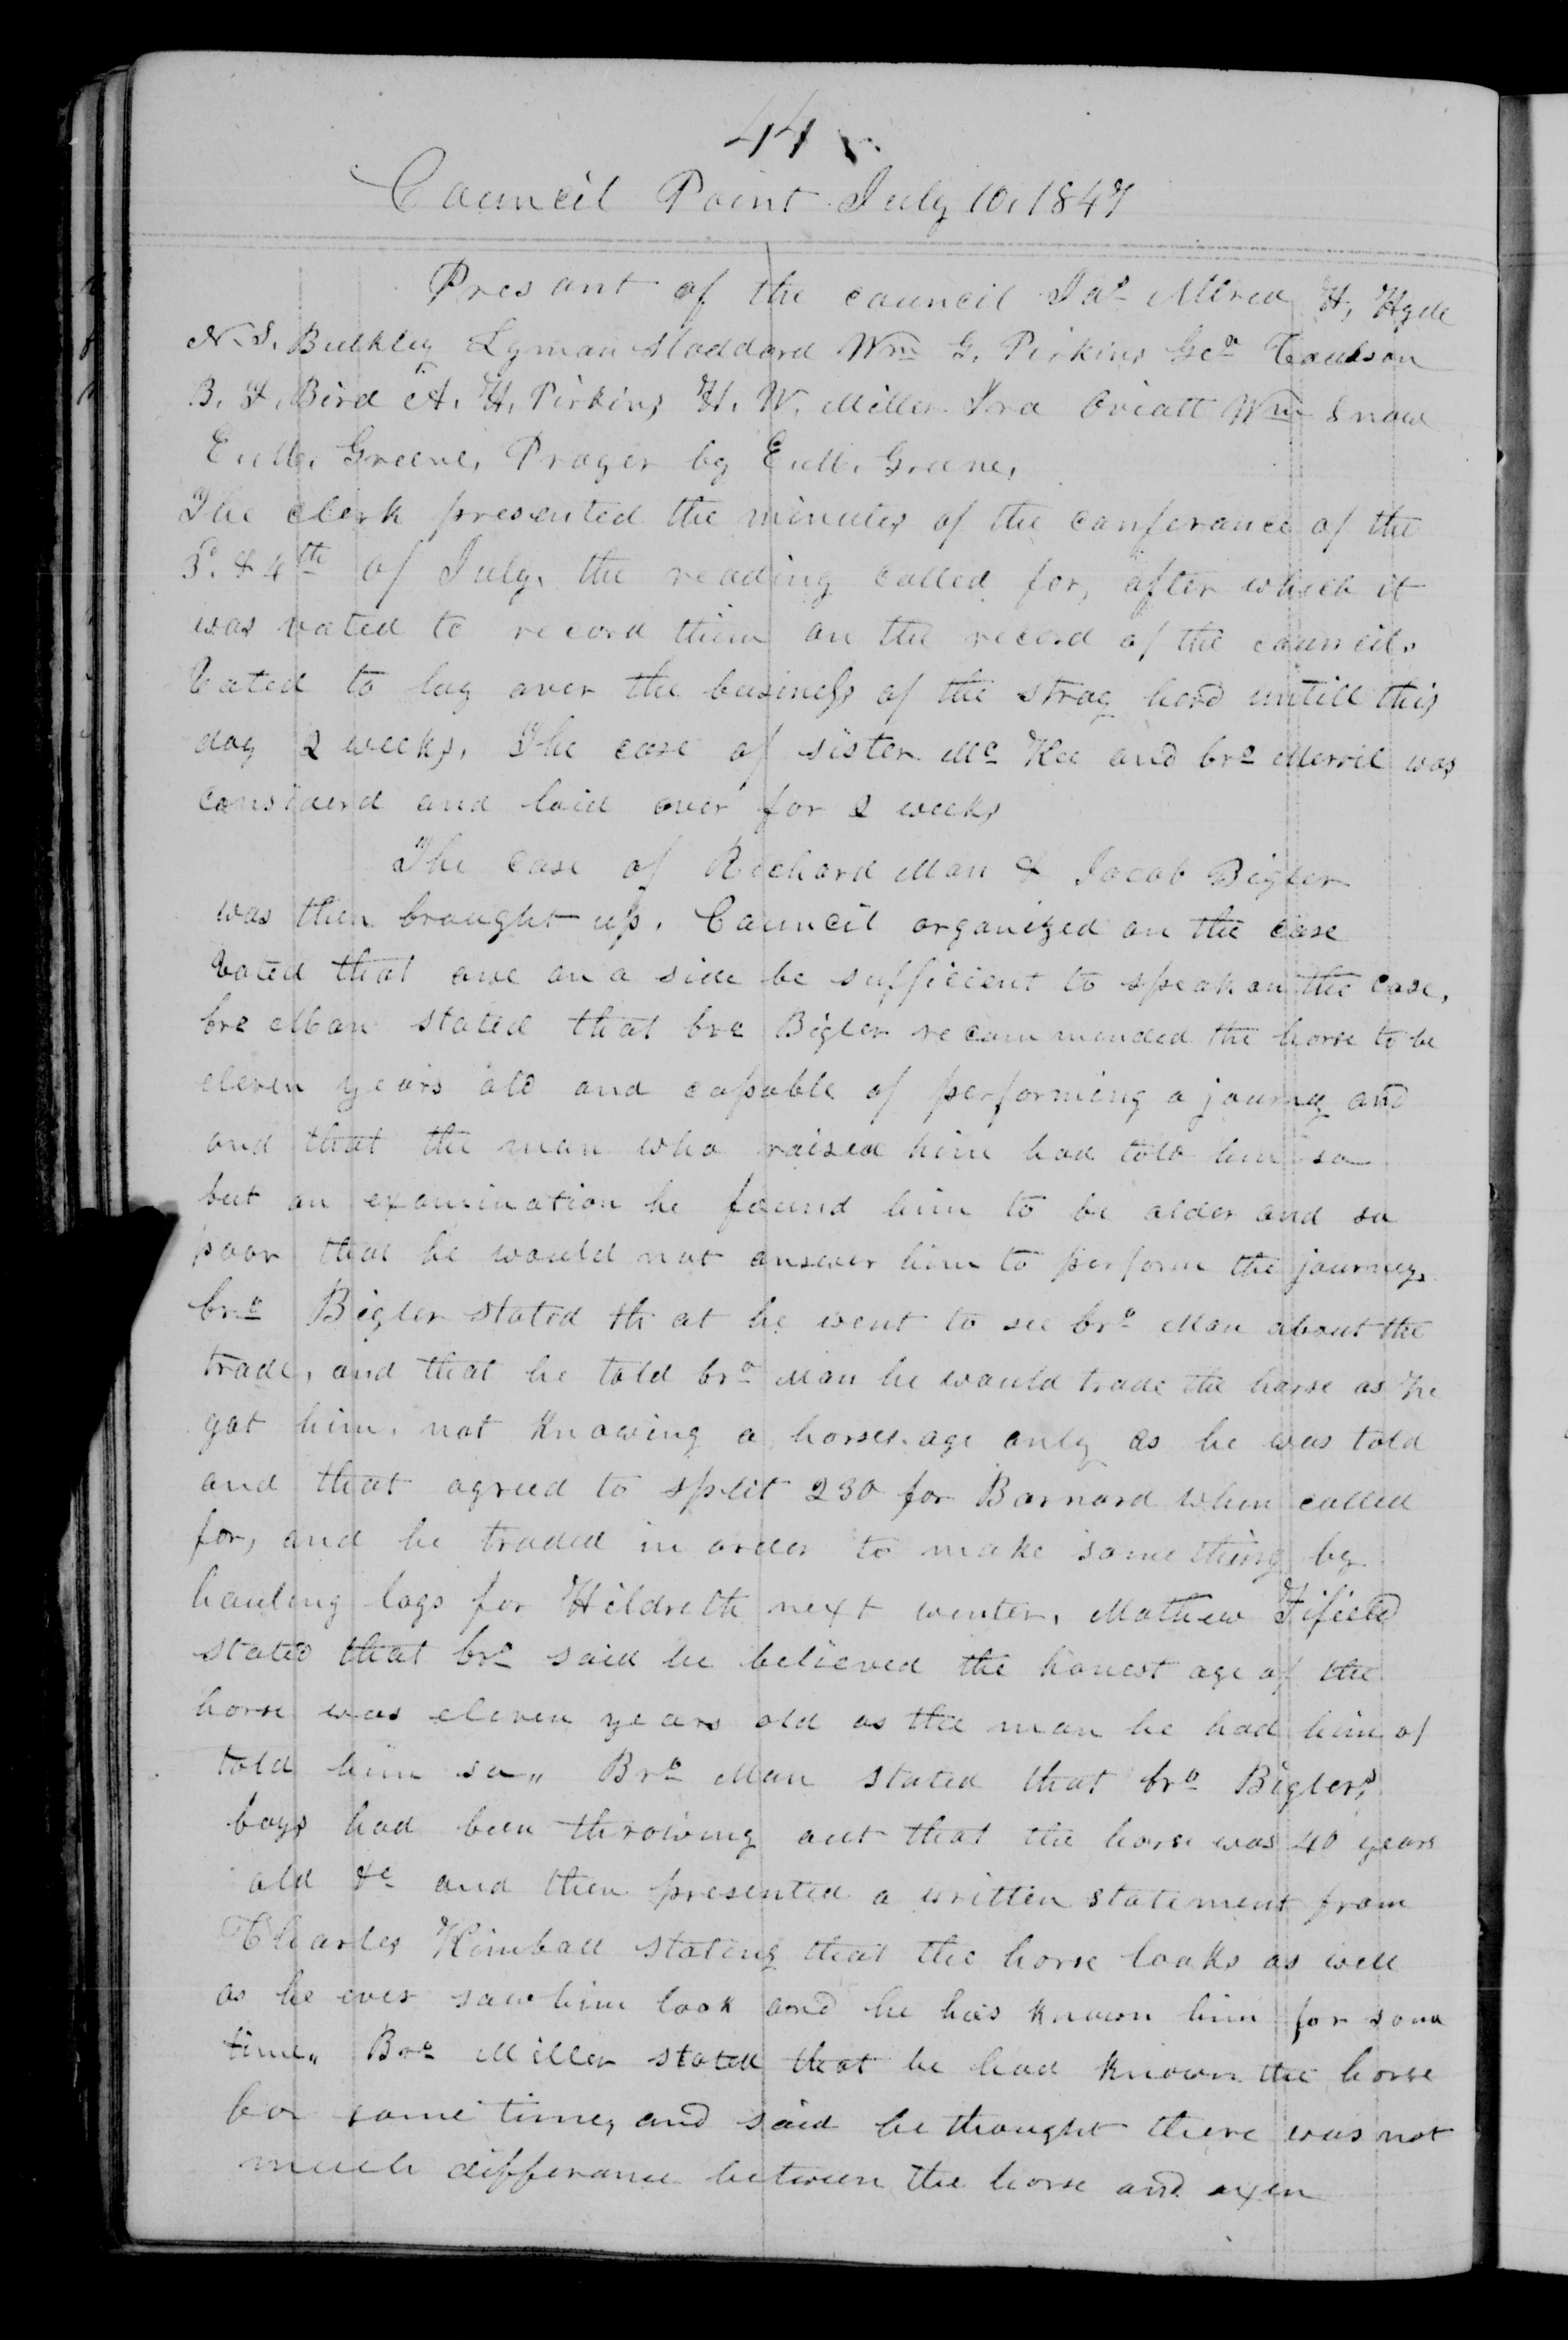 44
Council Point July 10, 1847
Presant of the council Jas Allred H, Hyde
N. S. Bulkley Lyman Stoddard Wm G. Pirkins Geo Coulson
B. F. Bird A. H. Pirkins H. W. Miller Ira Oviatt Wm Snow
Evn M. Greene, Prayer by Evn M. Greene,
The clerk presented the minutes of the conferance of the
3d. & 4th of July, the reading called for, after which it
was voted to record them on the record of the council.
Voted to lay over the business of the stray herd untill this
day 2 weeks, The case of sister Mc Kee and bro Merril was
considerd and laid over for 2 weeks
The case of Richard Man & Jacob Bigler
was then brought up, Council organized on the case
Voted that one on a side be sufficient to speak on the case,
bro Man stated that bro Bigler recommended the horse to be
eleven years old and capable of performing a journey and
and that the man who raised him had told him so
but on examination he found him to be older and so
poor that he would not answer him to perform the journey,
bro Bigler stated that he went to see bro Man about the
trade, and that he told bro Man he would trade the horse as he
got him, not knowing a horses age only as he was told
and that agreed to split 230 for Barnard when called
for, and he traded in order to make something by
hauling logs for Hildreth next winter, Mathew Fifield
stated that bro said he believed the honest age of the
horse was eleven years old as the man he had him of
told him so,, Bro Man stated that bro Biglers
boys had been throwing out that the horse was 40 years
old &c and then presented a written statement from
Charles Kimball stating that the horse looks as well
as he ever saw him look and he has known him for some
time,, Bro Miller stated that he had known the horse
for some time, and said he thought there was not
much differance between the horse and oxen